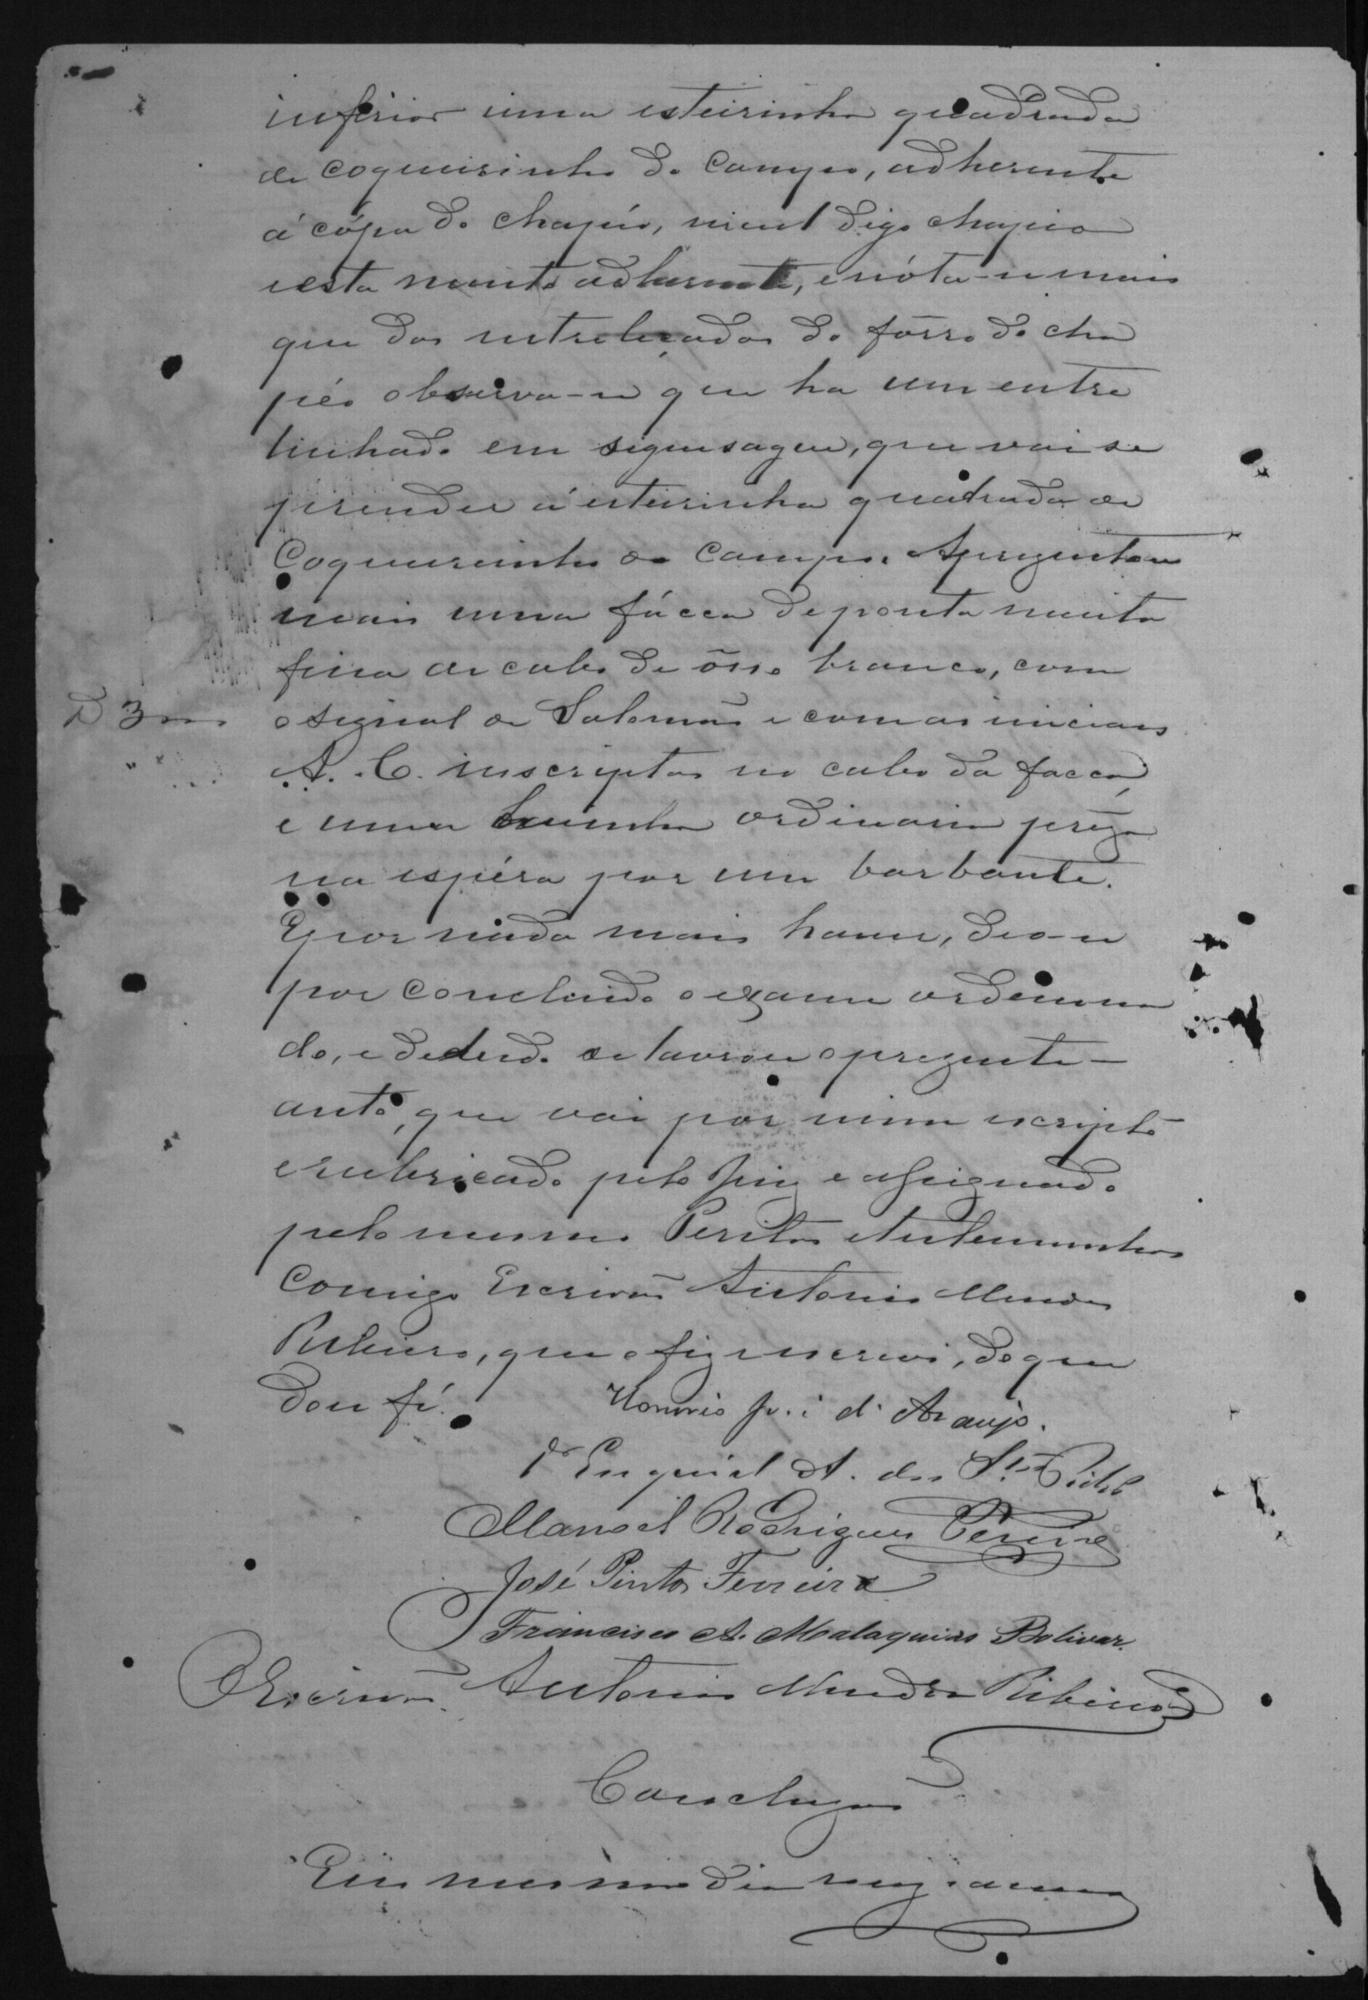 inferior uma esteirinha quadrada
de coqueirinho do campo, adherente
á cópa do chapéo, digo chapéo
esta muito adherente, e nóta-se mais
que dos entrelaçados do fôrro do cha
péo observa-se que ha um entre
linhado em siguesague, que vai se
prender á esteirinha quadrada de
Coqueirinho do campo. Aprezentou
mais uma fácca de ponta muito
fina de cabo de ôsso branco, com
D 3
o signal de Salomão e com as iniciaes
A. C. inscriptas no cabo da facca,
e uma bainha ordinaria preza
na espéra por um barbante.
E por nada mais haver, deo-se
por concluido o exame ordena
do, e de tudo se lavrou o prezente
auto, que vai por mim escripto
e rubricado pelo Juiz e assignado
pelo mesmo Peritos e testemunhas
Comigo Escrivão Antonio Mendes
Ribeiro, que o fiz e escrevi, do que
dou fé.
d' Araujo.
Dr Ezequiel A. dos
Manoel Rodrigues Pereira
José Pinto Ferreira
Francisco A. Malaquias Bolivar.
O Escrivão Antonio Mendes Ribeiro
Conclusão
Em mesmo dia mez e anno